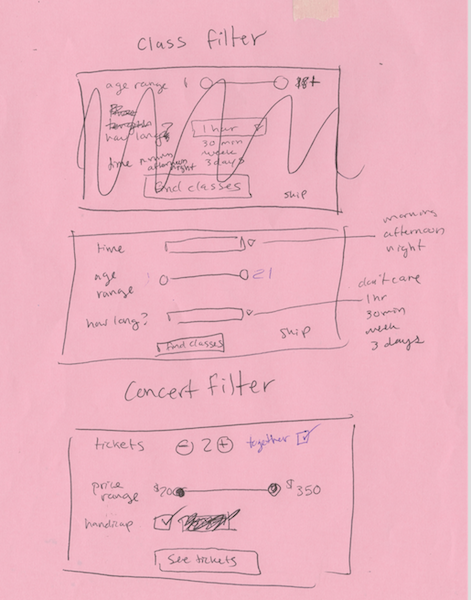 class filter
age range 1 18+
how long?
1 hour
30 min
week
3 days
time morning
afternoon
night
find classes
skip
time
morning
afternoon
night
age
range
21
how long?
don't care
1hr
30min
week
3 days
find classes
skip
Concert filter
tickets - 2 + together
price
range
$200 $350
handicap
See tickets